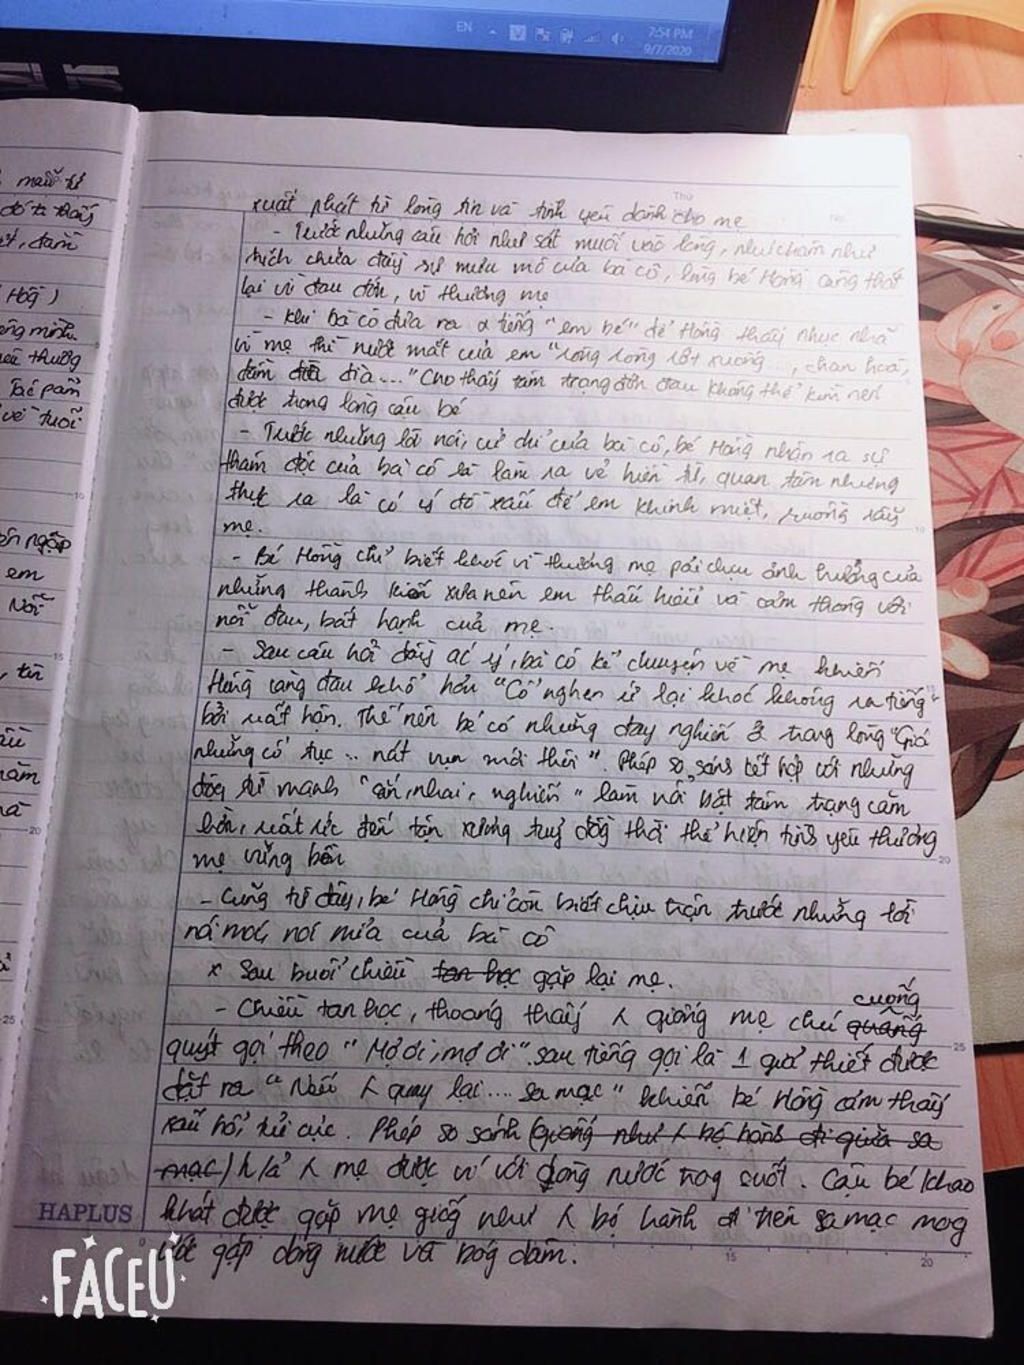 EN
7:54 PM
9/7/2020
Thứ
No.
mẫu tử
đó ta thấy
Hồg)
tác phẩm
về tuổi
em
Nỗi
xuất phát từ lòng tin và tình yêu dành cho mẹ
- Trước những câu hỏi như sát muối vào lòng, như châm như
hích chứa đầy sự mưu mô của bà cô, lòng bé Hồng càng thắt
lại vì đau đớn, vì thương mẹ
- Khi bà cô đưa ra 2 tiếng "em bé" để Hồng thấy nhục nhã
vì mẹ thì nước mắt của em "ròng ròng rớt xuống..., chan hoà,
đầm đìa..." Cho thấy tâm trạng đớn đau không thể kìm nén
được trong lòng cậu bé
- Trước những lời nói, cử chỉ của bà cô, bé Hồng nhận ra sự
thâm độc của bà cô là làm ra vẻ hiền từ, quan tâm nhưng
thực ra là có ý đồ xấu để em khinh miệt, ruồng rẫy
mẹ.
- Bé Hồng chỉ biết khóc vì thương mẹ phải chịu ảnh hưởng của
những thành kiến xưa nên em thấu hiểu và cảm thông với
nỗi đau, bất hạnh của mẹ.
- Sau câu hỏi đầy ác ý, bà cô kể chuyện về mẹ khiến
Hồng càng đau khổ hơn "Cổ nghẹn ứ lại khóc không ra tiếng"
bởi uất hận. Thế nên bé có những day nghiến ở trong lòng "Giá
những cổ tục ... nát vụn mới thôi". Phép so sánh kết hợp với những
độg từ mạnh "cắn, nhai, nghiến" làm nổi bật tâm trạng căm
hờn, uất ức đến tận xương tuỷ đồg thời thể hiện tình yêu thương
mẹ vững bền
- Cũng từ đây, bé Hồng chỉ còn biết chịu trận trước những lời
nói móc, nói mỉa của bà cô
x Sau buổi chiều tan học gặp lại mẹ.
- Chiều tan học, thoáng thấy 1 giống mẹ chú quang cuống
quýt gọi theo "Mợ ơi, mợ ơi". sau tiếng gọi là 1 giả thiết được
đặt ra "Nếu quay lại .... sa mạc" khiến bé Hồng cảm thấy
xấu hổ, tủi cực. Phép so sánh (giống như bộ hành đi giữa sa
mạc) h/ả mẹ được ví với dòng nước trog suốt. Cậu bé khao
khát được gặp mẹ giốg như bộ hành đi trên sa mạc mog
ước gặp dòng nước và bóg dâm.
HAPLUS
FACEU
10
15
20
25
15
20